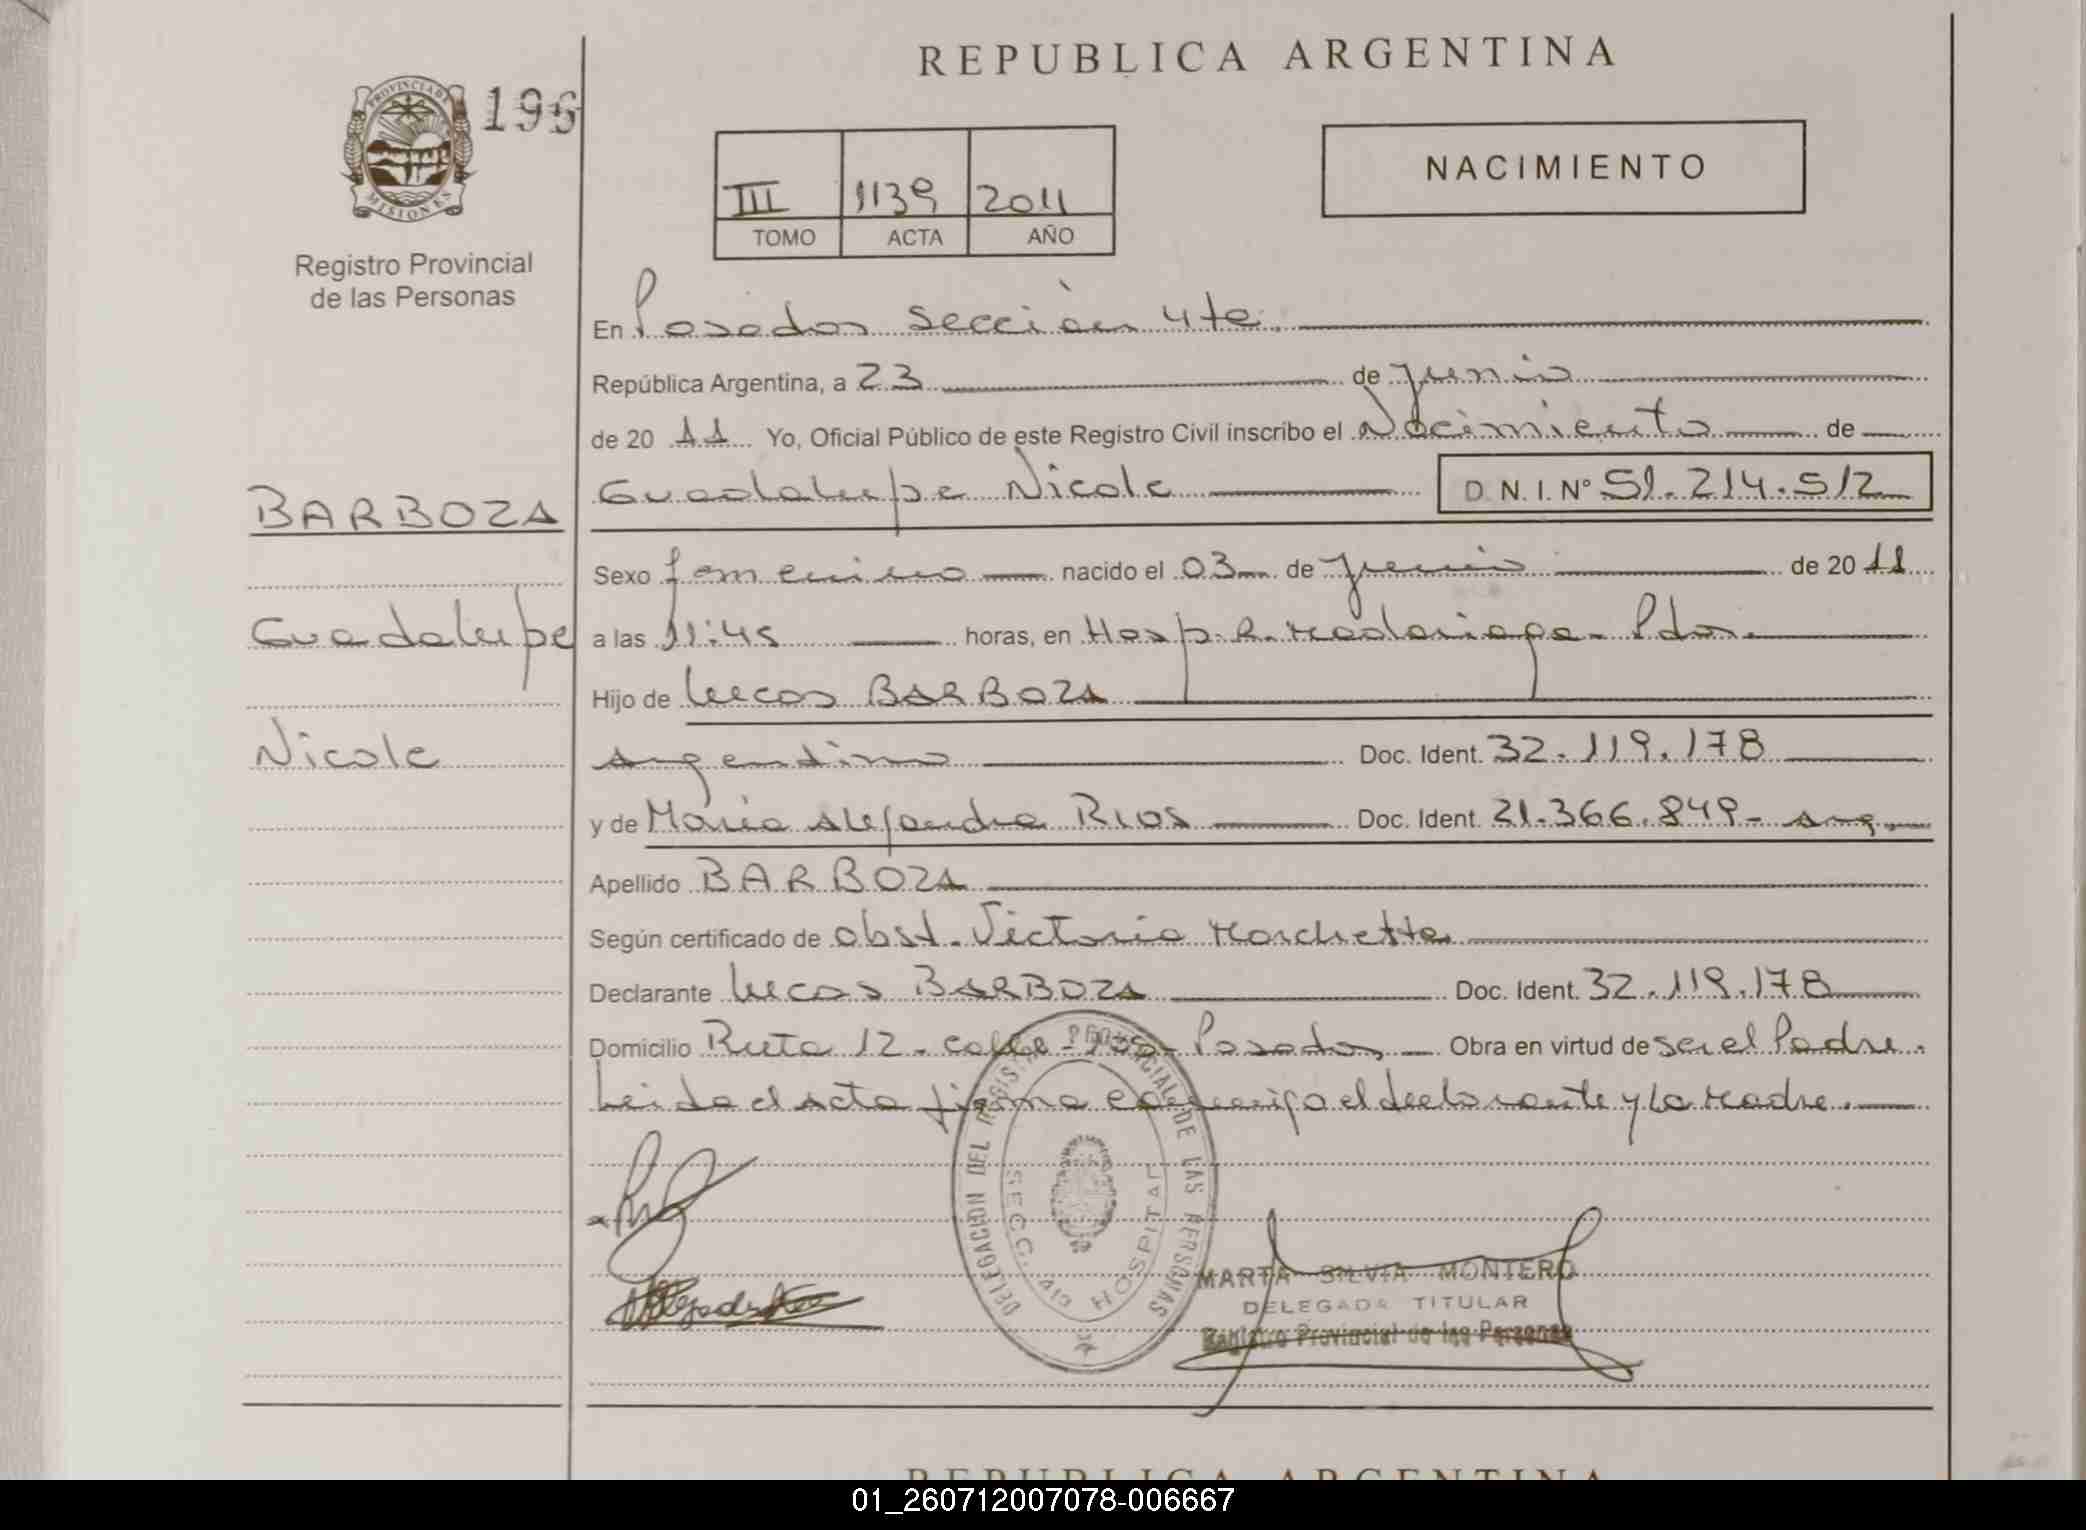 REPUBLICA ARGENTINA
PROVINCIA DE
MISIONES
196
Registro Provincial
de las Personas
III 1139 2011
TOMO ACTA AÑO
NACIMIENTO
En Posadas Sección 4ta.
República Argentina, a 23 de junio
de 20 11 Yo, Oficial Público de este Registro Civil inscribo el Nacimiento de
BARBOZA
Guadalupe Nicole D.N.I.Nº 51.214.512
Sexo femenino nacido el 03 de junio de 20 11
Guadalupe
a las 11:45 horas, en Hosp. R. Madariaga - Pdas.
Hijo de Lucas BARBOZA
Nicole
argentino Doc. Ident. 32.119.178
y de María Alejandra RIOS Doc. Ident. 21.366.849 - arg.
Apellido BARBOZA
Según certificado de obst. Victoria Marchetta
Declarante Lucas BARBOZA Doc. Ident. 32.119.178
Domicilio Ruta 12 - calle - Posadas Obra en virtud de ser el Padre.
Leida el acta firma conmigo el declarante y la Madre.
DELEGACION DEL REGISTRO PROVINCIAL DE LAS PERSONAS
SECC. 4ta HOSPITAL
MARTA SILVIA MONTERO
DELEGADA TITULAR
Registro Provincial de las Personas
REPUBLICA ARGENTINA
01_260712007078-006667